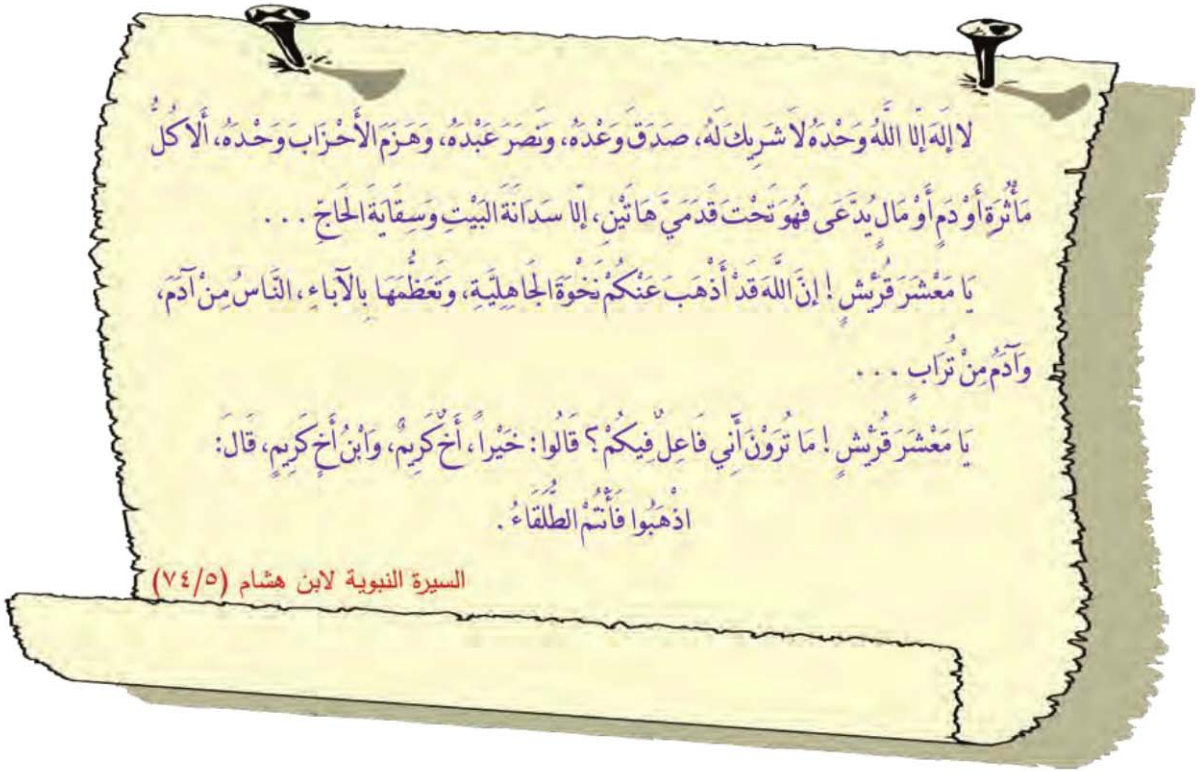 لا إِلَهَ إِلَّا اللَّهُ وَحْدَهُ لَا شَرِيكَ لَهُ، صَدَقَ وَعْدَهُ، وَنَصَرَ عَبْدَهُ، وَهَزَمَ الأَحْزَابَ وَحْدَهُ، أَلَا كُلُّ
مَأْثُرَةٍ أَوْ دَمٍ أَوْ مَالٍ يُدَّعَى فَهُوَ تَحْتَ قَدَمَيَّ هَاتَيْنِ، إلَّا سَدَانَةَ البَيْتِ وَسِقَايَةَ الحَاجّ ...
يَا مَعْشَرَ قُرَيْشٍ! إنَّ اللَّهَ قَدْ أَذْهَبَ عَنْكُمْ نَخْوَةَ الجَاهِلِيَّةِ، وَتَعَظُّمَهَا بِالآباءِ، النَّاسُ مِنْ آدَمَ،
وَآدَمُ مِنْ تُرَابٍ ...
يَا مَعْشَرَ قُرَيْشٍ! مَا تُرَوْنَ أَنِّي فَاعِلٌ فِيكُمْ؟ قَالُوا: خَيْراً، أَخٌ كَرِيمٌ، وَابْنُ أَخٍ كَرِيمٍ، قَالَ:
اذْهَبُوا فَأَنْتُمْ الطُّلَقَاءُ.
السيرة النبوية لابن هشام (٧٤/٥)